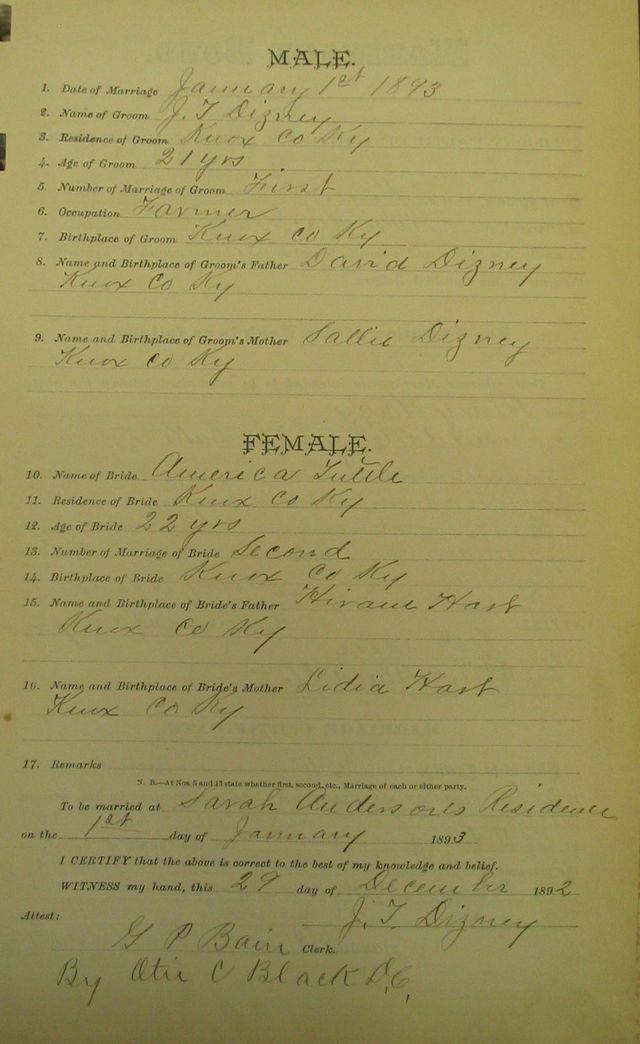 MALE.
1. Date of Marriage January 1st 1893
2. Name of Groom J. T Dizney
3. Residence of Groom Knox Co Ky
4. Age of Groom 21 yrs
5. Number of Marriage of Groom First
6. Occupation Farmer
7. Birthplace of Groom Knox Co Ky
8. Name and Birthplace of Groom's Father David Dizney
Knox Co Ky
9. Name and Birthplace of Groom's Mother Sallie Dizney
Knox Co Ky
FEMALE.
10. Name of Bride America Tuttle
11. Residence of Bride Knox Co Ky
12. Age of Bride 22 yrs
13. Number of Marriage of Bride Second
14. Birthplace of Bride Knox Co Ky
15. Name and Birthplace of Bride's Father Hiram Hast
Knox Co Ky
16. Name and Birthplace of Bride's Mother Lidia Hast
Knox Co Ky
17. Remarks
N. B.—At Nos. 5 and 13 state whether first, second, etc., Marriage of each or either party.
To be married at Sarah Andersons Residence
on the 1st day of January 1893
I CERTIFY that the above is correct to the best of my knowledge and belief.
WITNESS my hand, this 29 day of December 1892
J. T. Dizney
Attest:
G P Bain Clerk.
By Otis C Black D.C.